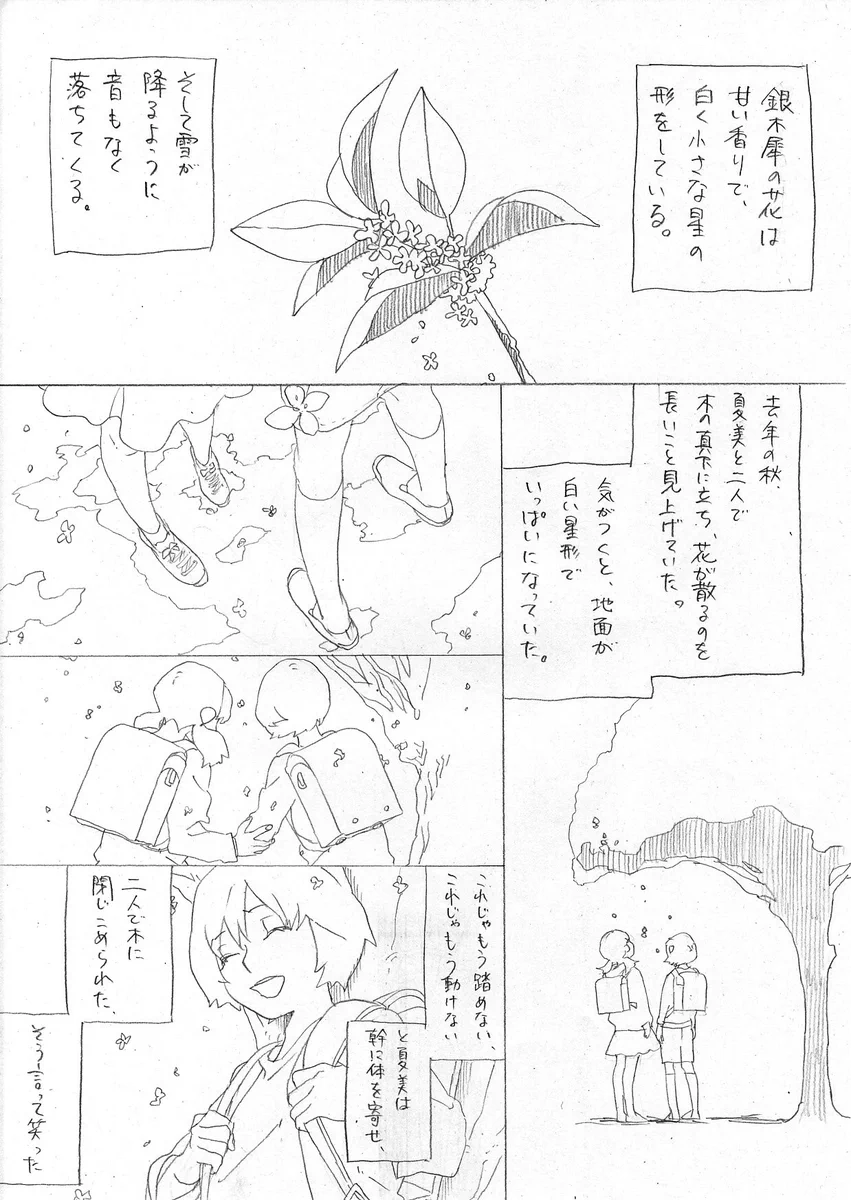 銀木犀の花は
甘い香りで、
白く小さな星の
形をしている。
そして雪が
降るように
音もなく
落ちてくる。
去年の秋、
夏美と二人で
木の真下に立ち、花が散るのを
長いこと見上げていた。
気がつくと、地面が
白い星形で
いっぱいになっていた。
これじゃもう踏めない、
これじゃもう動けない
と夏美は
幹に体を寄せ、
二人で木に
閉じこめられた、
そう言って笑った